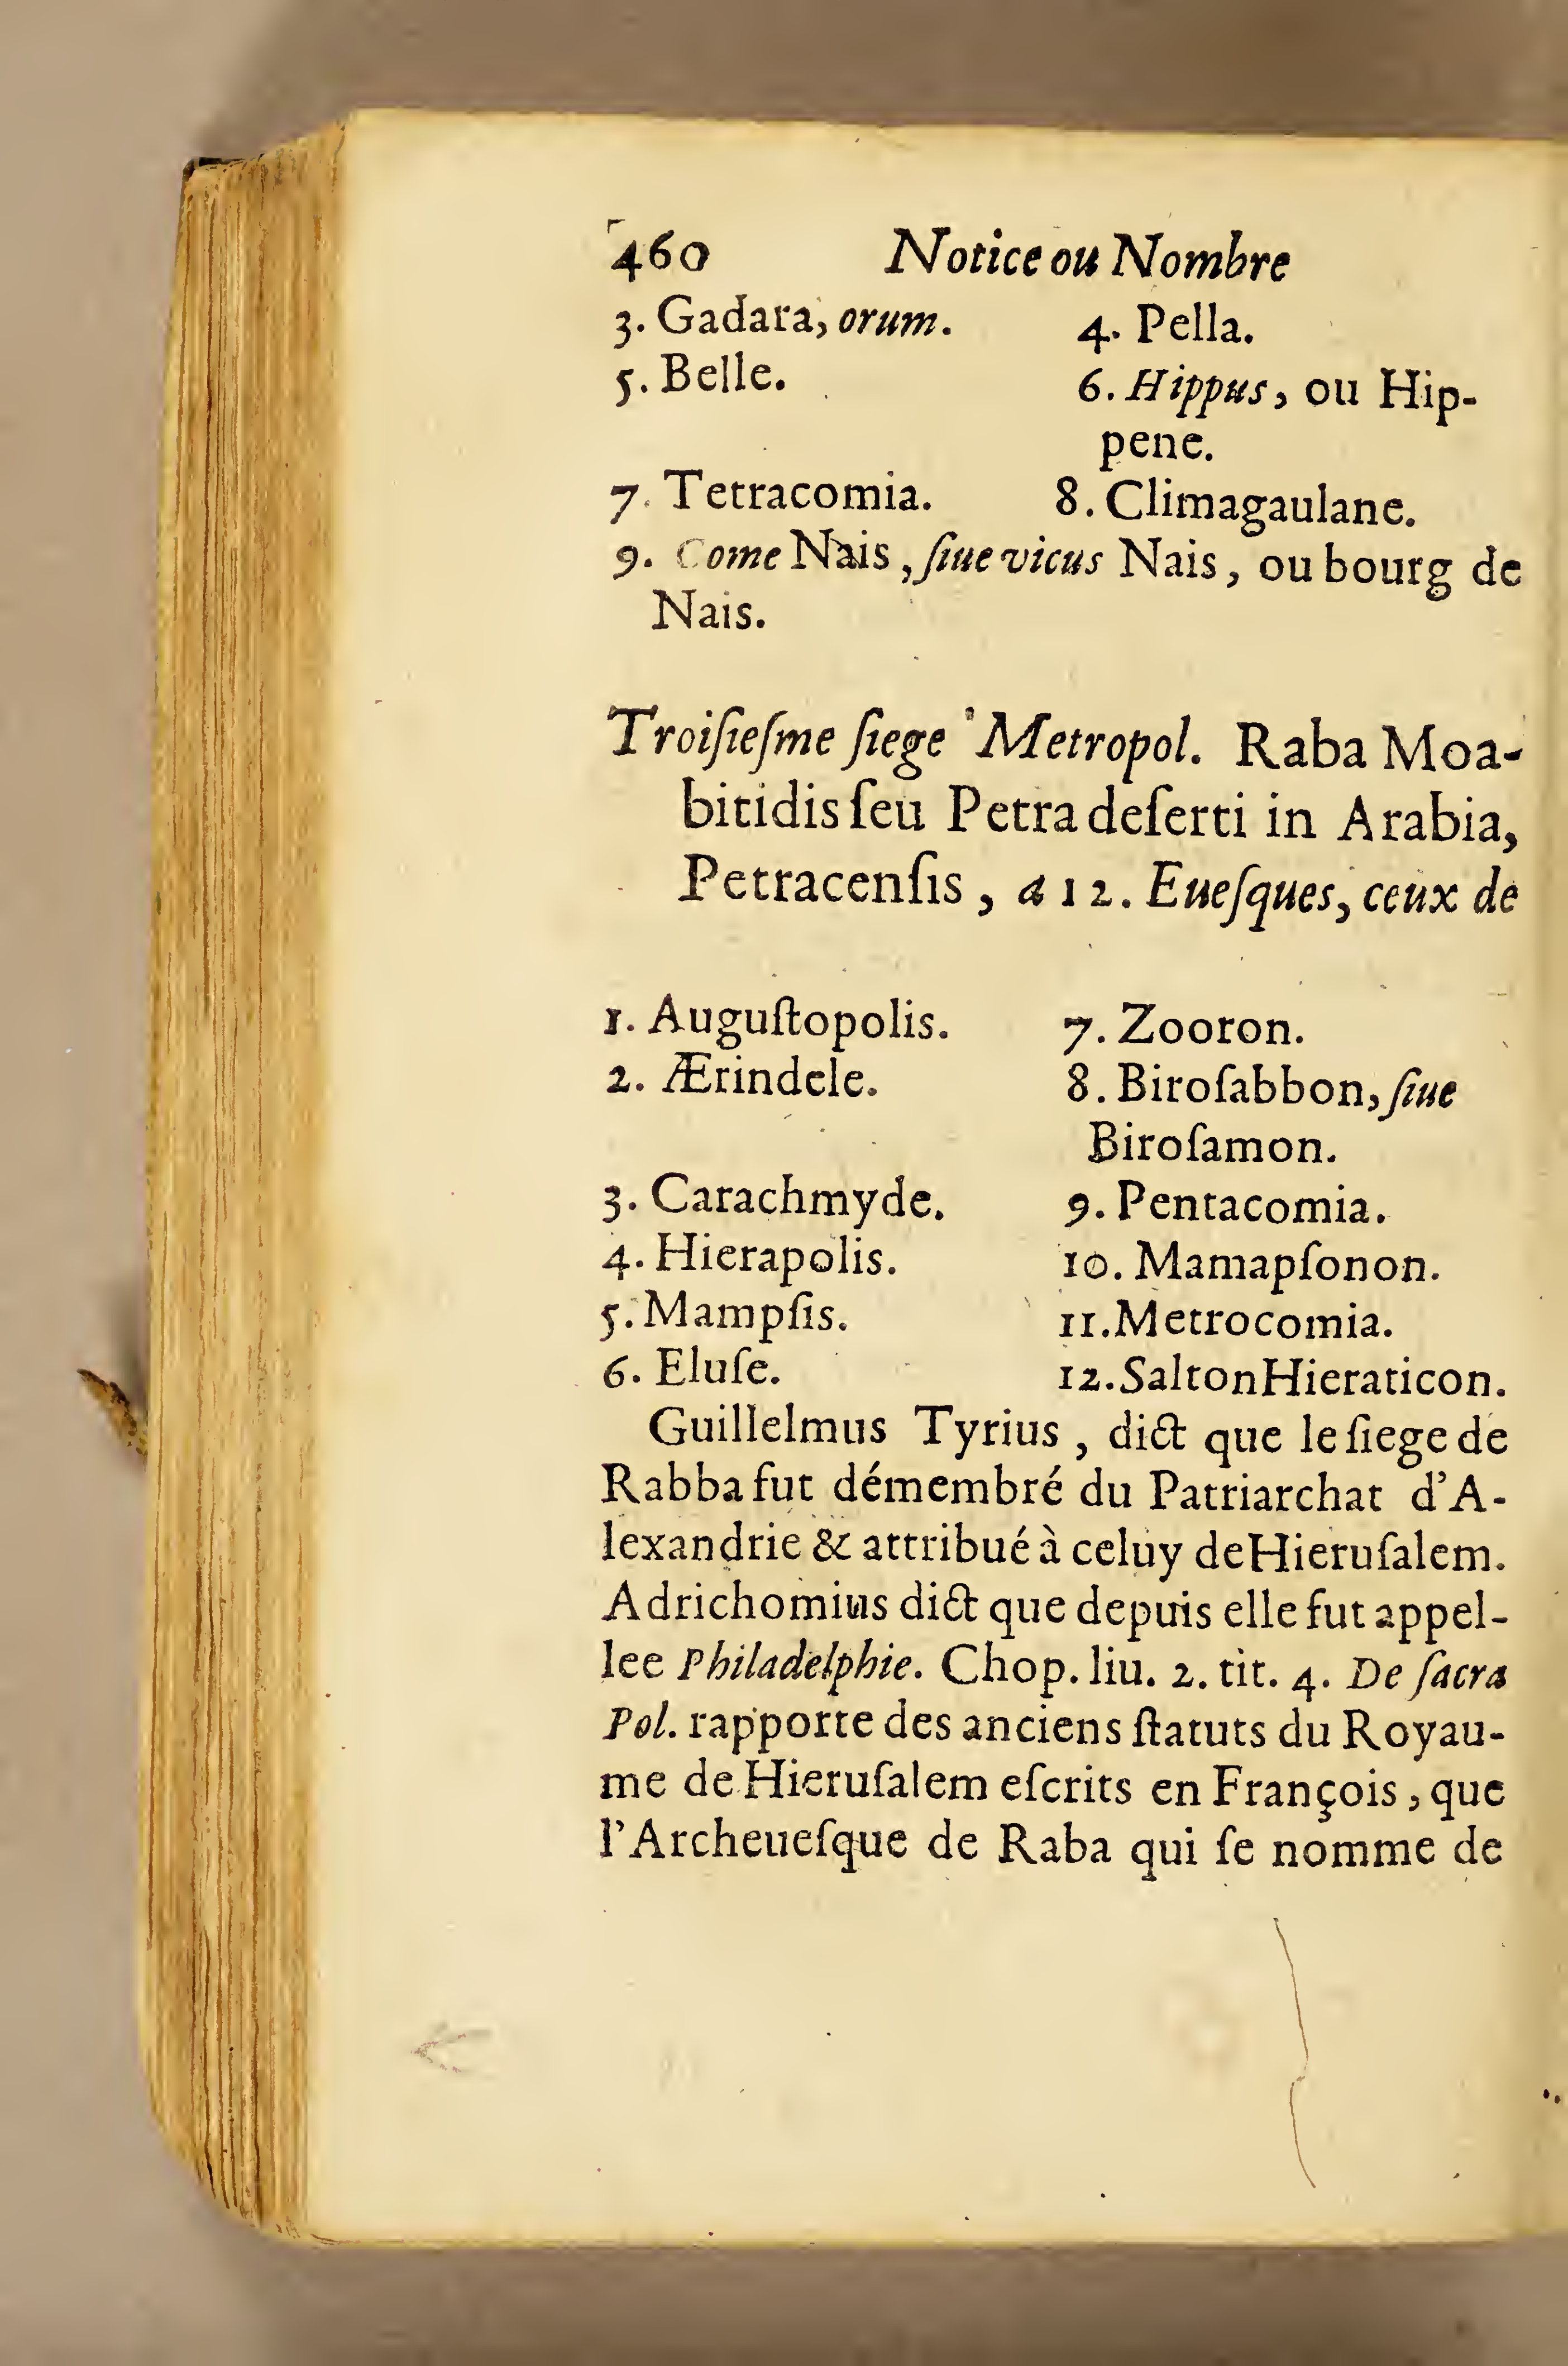 460 Notice ou Nombre
3. Gadara, orum. 4. Pella.
5. Belle. 6. Hippus, ou Hip-
pene.
7. Tetracomia. 8. Climagaulane.
9. Come Nais, ſiue vicus Nais, ou bourg de
Nais.
Troiſieſme ſiege Metropol. Raba Moa-
bitidis ſeu Petra deſerti in Arabia,
Petracenſis, a 12. Eueſques, ceux de
1. Auguſtopolis. 7. Zooron.
2. Ærindele. 8. Biroſabbon, ſiue
Biroſamon.
3. Carachmyde. 9. Pentacomia.
4. Hierapolis. 10. Mamapſonon.
5. Mampſis. 11. Metrocomia.
6. Eluſe. 12. Salton Hieraticon.
Guillelmus Tyrius, dict que le ſiege de
Rabba fut démembré du Patriarchat d'A-
lexandrie & attribué à celuy de Hieruſalem.
Adrichomius dict que depuis elle fut appel-
lee Philadelphie. Chop. liu. 2. tit. 4. De ſacra
Pol. rapporte des anciens ſtatuts du Royau-
me de Hieruſalem eſcrits en François, que
l'Archeueſque de Raba qui ſe nomme de